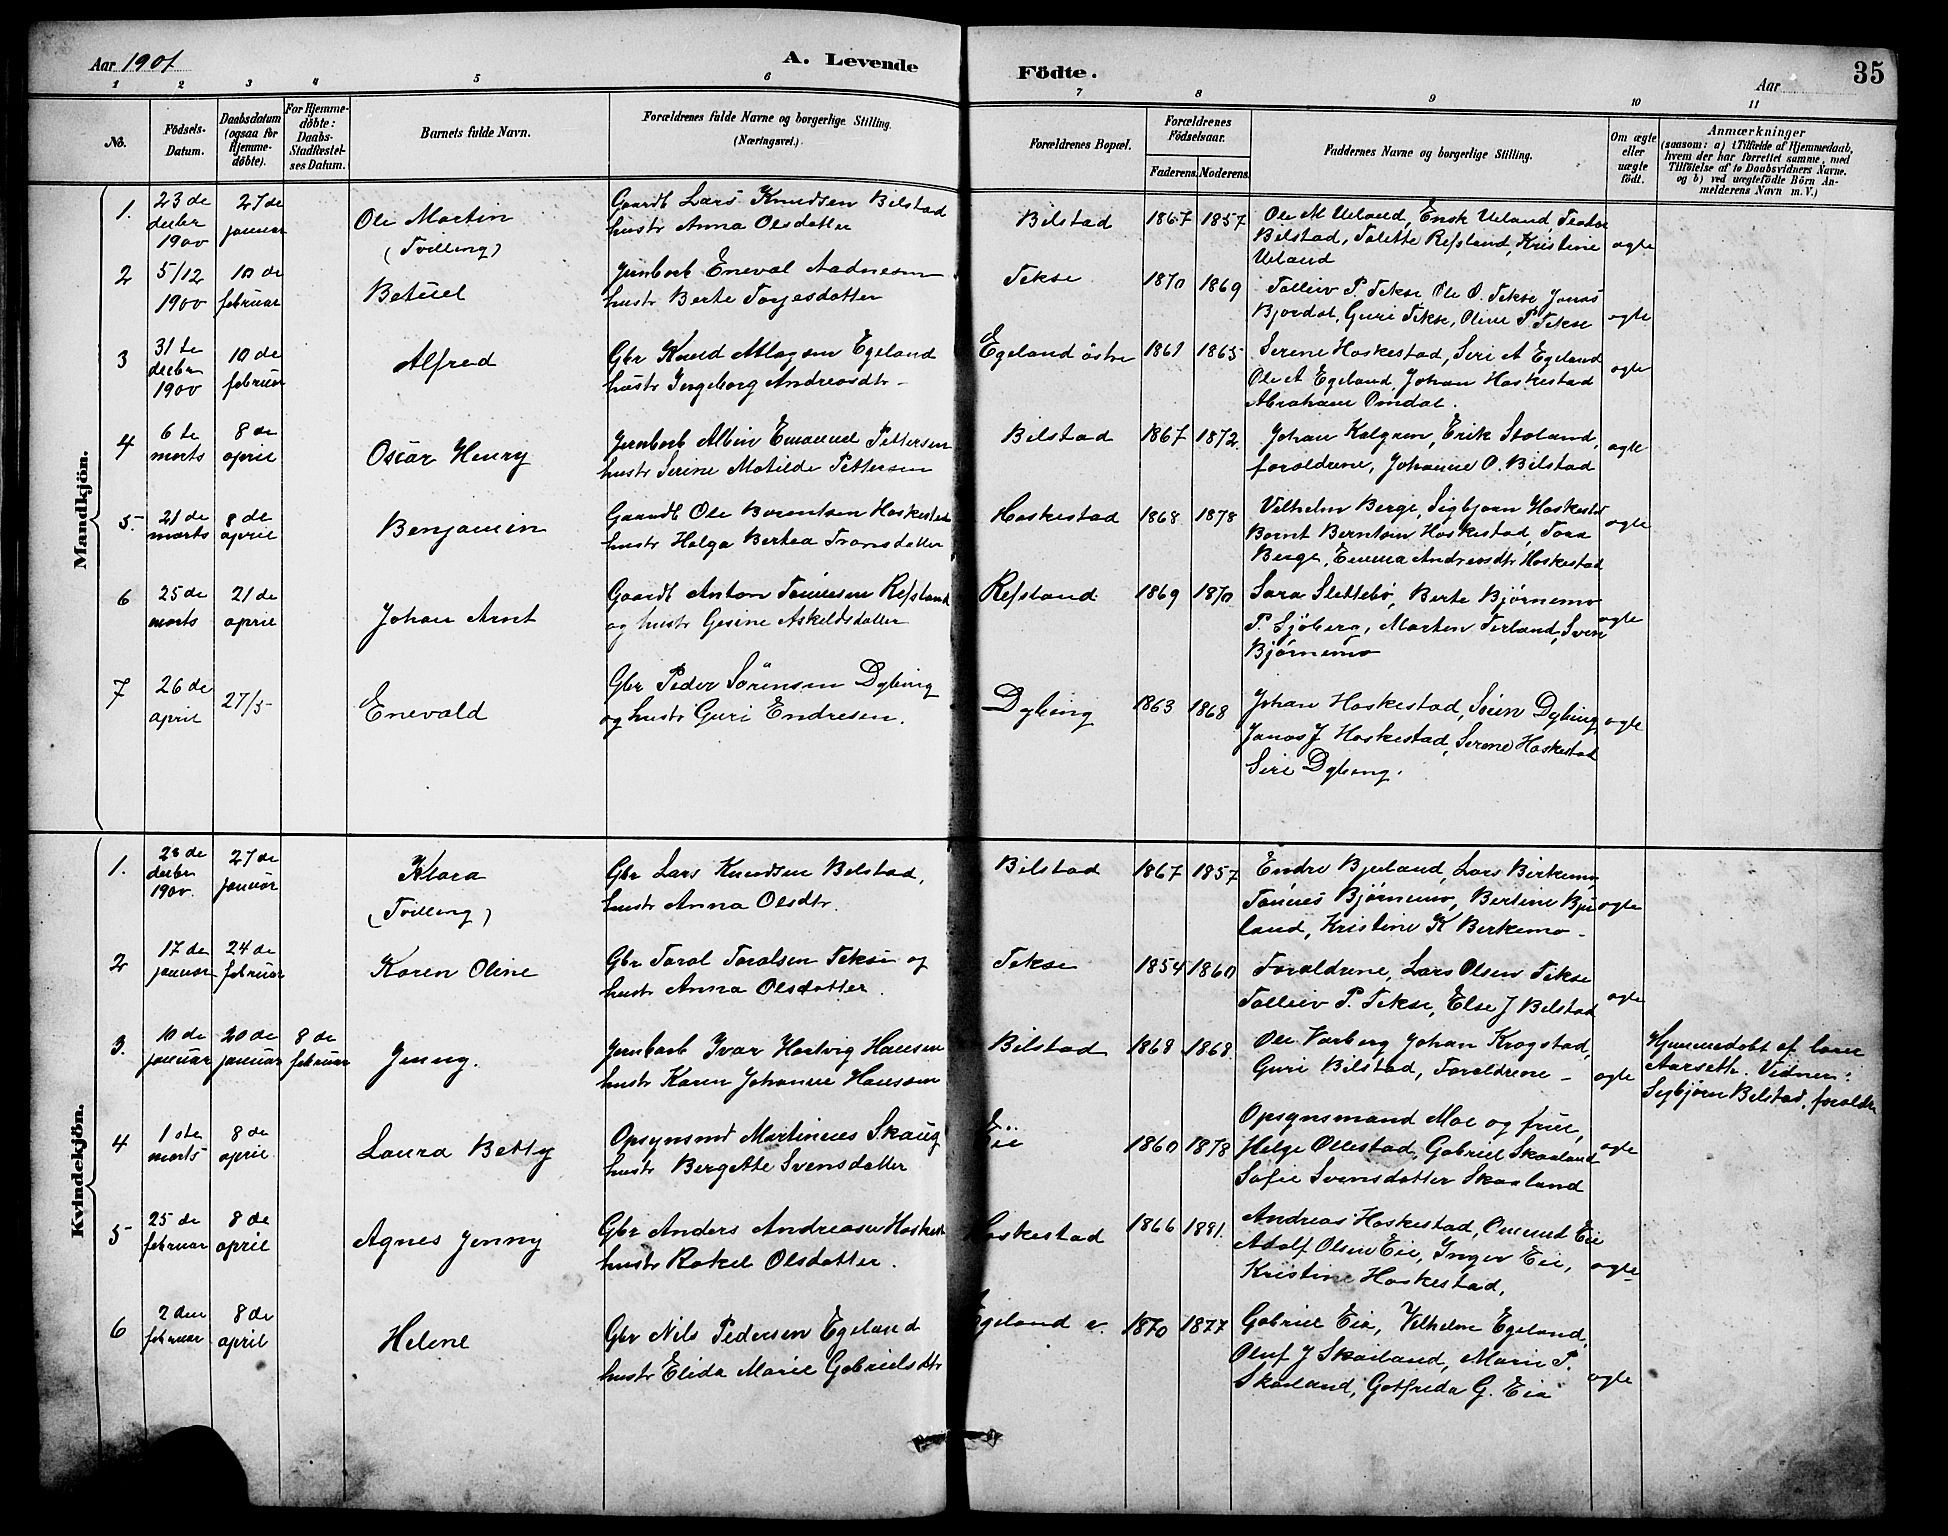 Aar 1901
A. Levende
Födte.
Aar
35
1 2 3 4 5 6 7 8 9 10 11
No.
Födsels-Datum.
Daabsdatum (ogsaa for Hjemme-döbte).
For Hjemme-döbte: Daabs-Stadfæstel-ses Datum.
Barnets fulde Navn.
Forældrenes fulde Navne og borgerlige Stilling.
(Næringsvei.)
Forældrenes Bopæl.
Forældrenes Födselsaar.
Faderens. Moderens.
Faddernes Navne og borgerlige Stilling.
Om ægte eller uægte födt.
Anmærkninger
(saasom: a) i Tilfælde af Hjemmedaab, hvem der har forrettet samme, med Tilföielse af to Daabsvidners Navne, og b) ved uægtefödte Börn An-melderens Navn m. V.)
Mandkjön.
1. 23 de decbr 1900 27 de januar Ole Martin (Tvilling)
Gaardb Lars Knudsen Bilstad
hustr Anna Olsdatter
Bilstad 1867 1857
Ole M Ueland, Ueland,
Bilstad, Tolette Refsland, Kristine
Ueland
ægte
2 5/12 1900 10 de februar Betuel
Jernbarb Eneval Aadnesen
hustr Berte Torjesdatter
Tekse 1870 1869
Talleiv P. Tekse, Ole O. Tekse, Jonas
Bjordal, Guri Tekse, Oline P. Tekse
ægte
3 31 te decbr 1900 10 de februar Alfred
Gbr Knud Atlagsen Egeland
hustr Ingeborg Andreasdtr
Egeland östre 1861 1865
Serene Haskestad, Seri A Egeland
Ole A Egeland, Johan Haskestad
Abraham Omdal.
ægte
4 6 te marts 8 de april Oscar Henry
Jernbarb Albin Emanuel Pettersen
hustr Serine Matilde Pettersen
Bilstad 1867 1872.
Johan Kalgren, Erik Stoland,
forældrene, Johanne O. Bilstad
ægte
5. 21 de marts 8 de april Benjamin
Gaardb Ole Berentsen Haskestad
hustr Helga Bertea Transdatter
Haskestad 1868 1878
Vilhelm Berge, Sigbjørn Haskestad
Bernt Berntsen Haskestad, Tora
Berge, Emma Andreasdtr Haskestad
ægte
6 25 de marts 21 de april Johan Arnt
Gaardb Anton Tønnesen Refsland
og hustr Gesine Askeldsdatter
Refsland 1869 1870
Sara Slettebø, Berte Bjørnemo
P. Sjøberg, Morten Terland, Sven
Bjørnemo
ægte
7 26 de april 27/5 Enevald
Gbr Peder Sørensen Dybing
og hustr Guri Endresen.
Dybing 1863 1868
Johan Haskestad, Søren Dybing
Jonas J Haskestad, Serene Haskestad
Siri Dybing.
ægte
Kvindekjön.
1. 23 de decbr 1900 27 de januar Klara (Tvilling)
Gbr Lars Knudsen Bilstad,
hustr Anna Olsdtr.
Bilstad 1867 1857
Endre Bjueland, Lars Birkemo,
Tønnes Bjørnemo, Bertine Bju
land, Kristine K Berkemo
ægte
2 17 de januar 24 de februar Karen Oline
Gbr Taral Taralsen Tekse og
hustr Anna Olsdatter.
Tekse 1854 1860
Forældrene, Lars Olsen Tekse
Talleiv P. Tekse, Else J Bilstad
ægte
3. 10 de januar 20 de januar 8 de februar Jenny.
Jernbarb Ivar Hartvig Hansen
hustr Karen Johanne Hanssen
Bilstad 1868 1868.
Ole Varberg Johan Krogstad,
Guri Bilstad, Forældrene
ægte
Hjemmedøbt af
Aarseth. Vidner:
Sigbjørn Bilstad, forældr
4 1 ste marts 8 de april Laura Betty
Opsynsmd Martinus Skaug
hustr Bergette Svensdatter
Eie 1860 1878
Opsynsmand Moe og frue,
Helge Ollestad, Gabriel Skaaland
Sofie Svensdatter Skaaland
ægte
5 25 de februar 8 de april Agnes Jenny
Gbr Anders Andreasen Haskest
hustr Rakel Olsdatter.
Haskestad 1866 1881.
Andreas Haskestad, Omund Eie
Adolf Olsen Eie, Inger Eie,
Kristine Haskestad,
ægte
6 2 den februar 8 de april Helene
Gbr Nils Pedersen Egeland
hustr Elida Marie Gabrielsdtr
Egeland v. 1870 1877
Gabriel Eia, Vilhelm Egeland,
Oluf J Skaaland, Marie P.
Skaaland, Gotfreda G. Eia
ægte